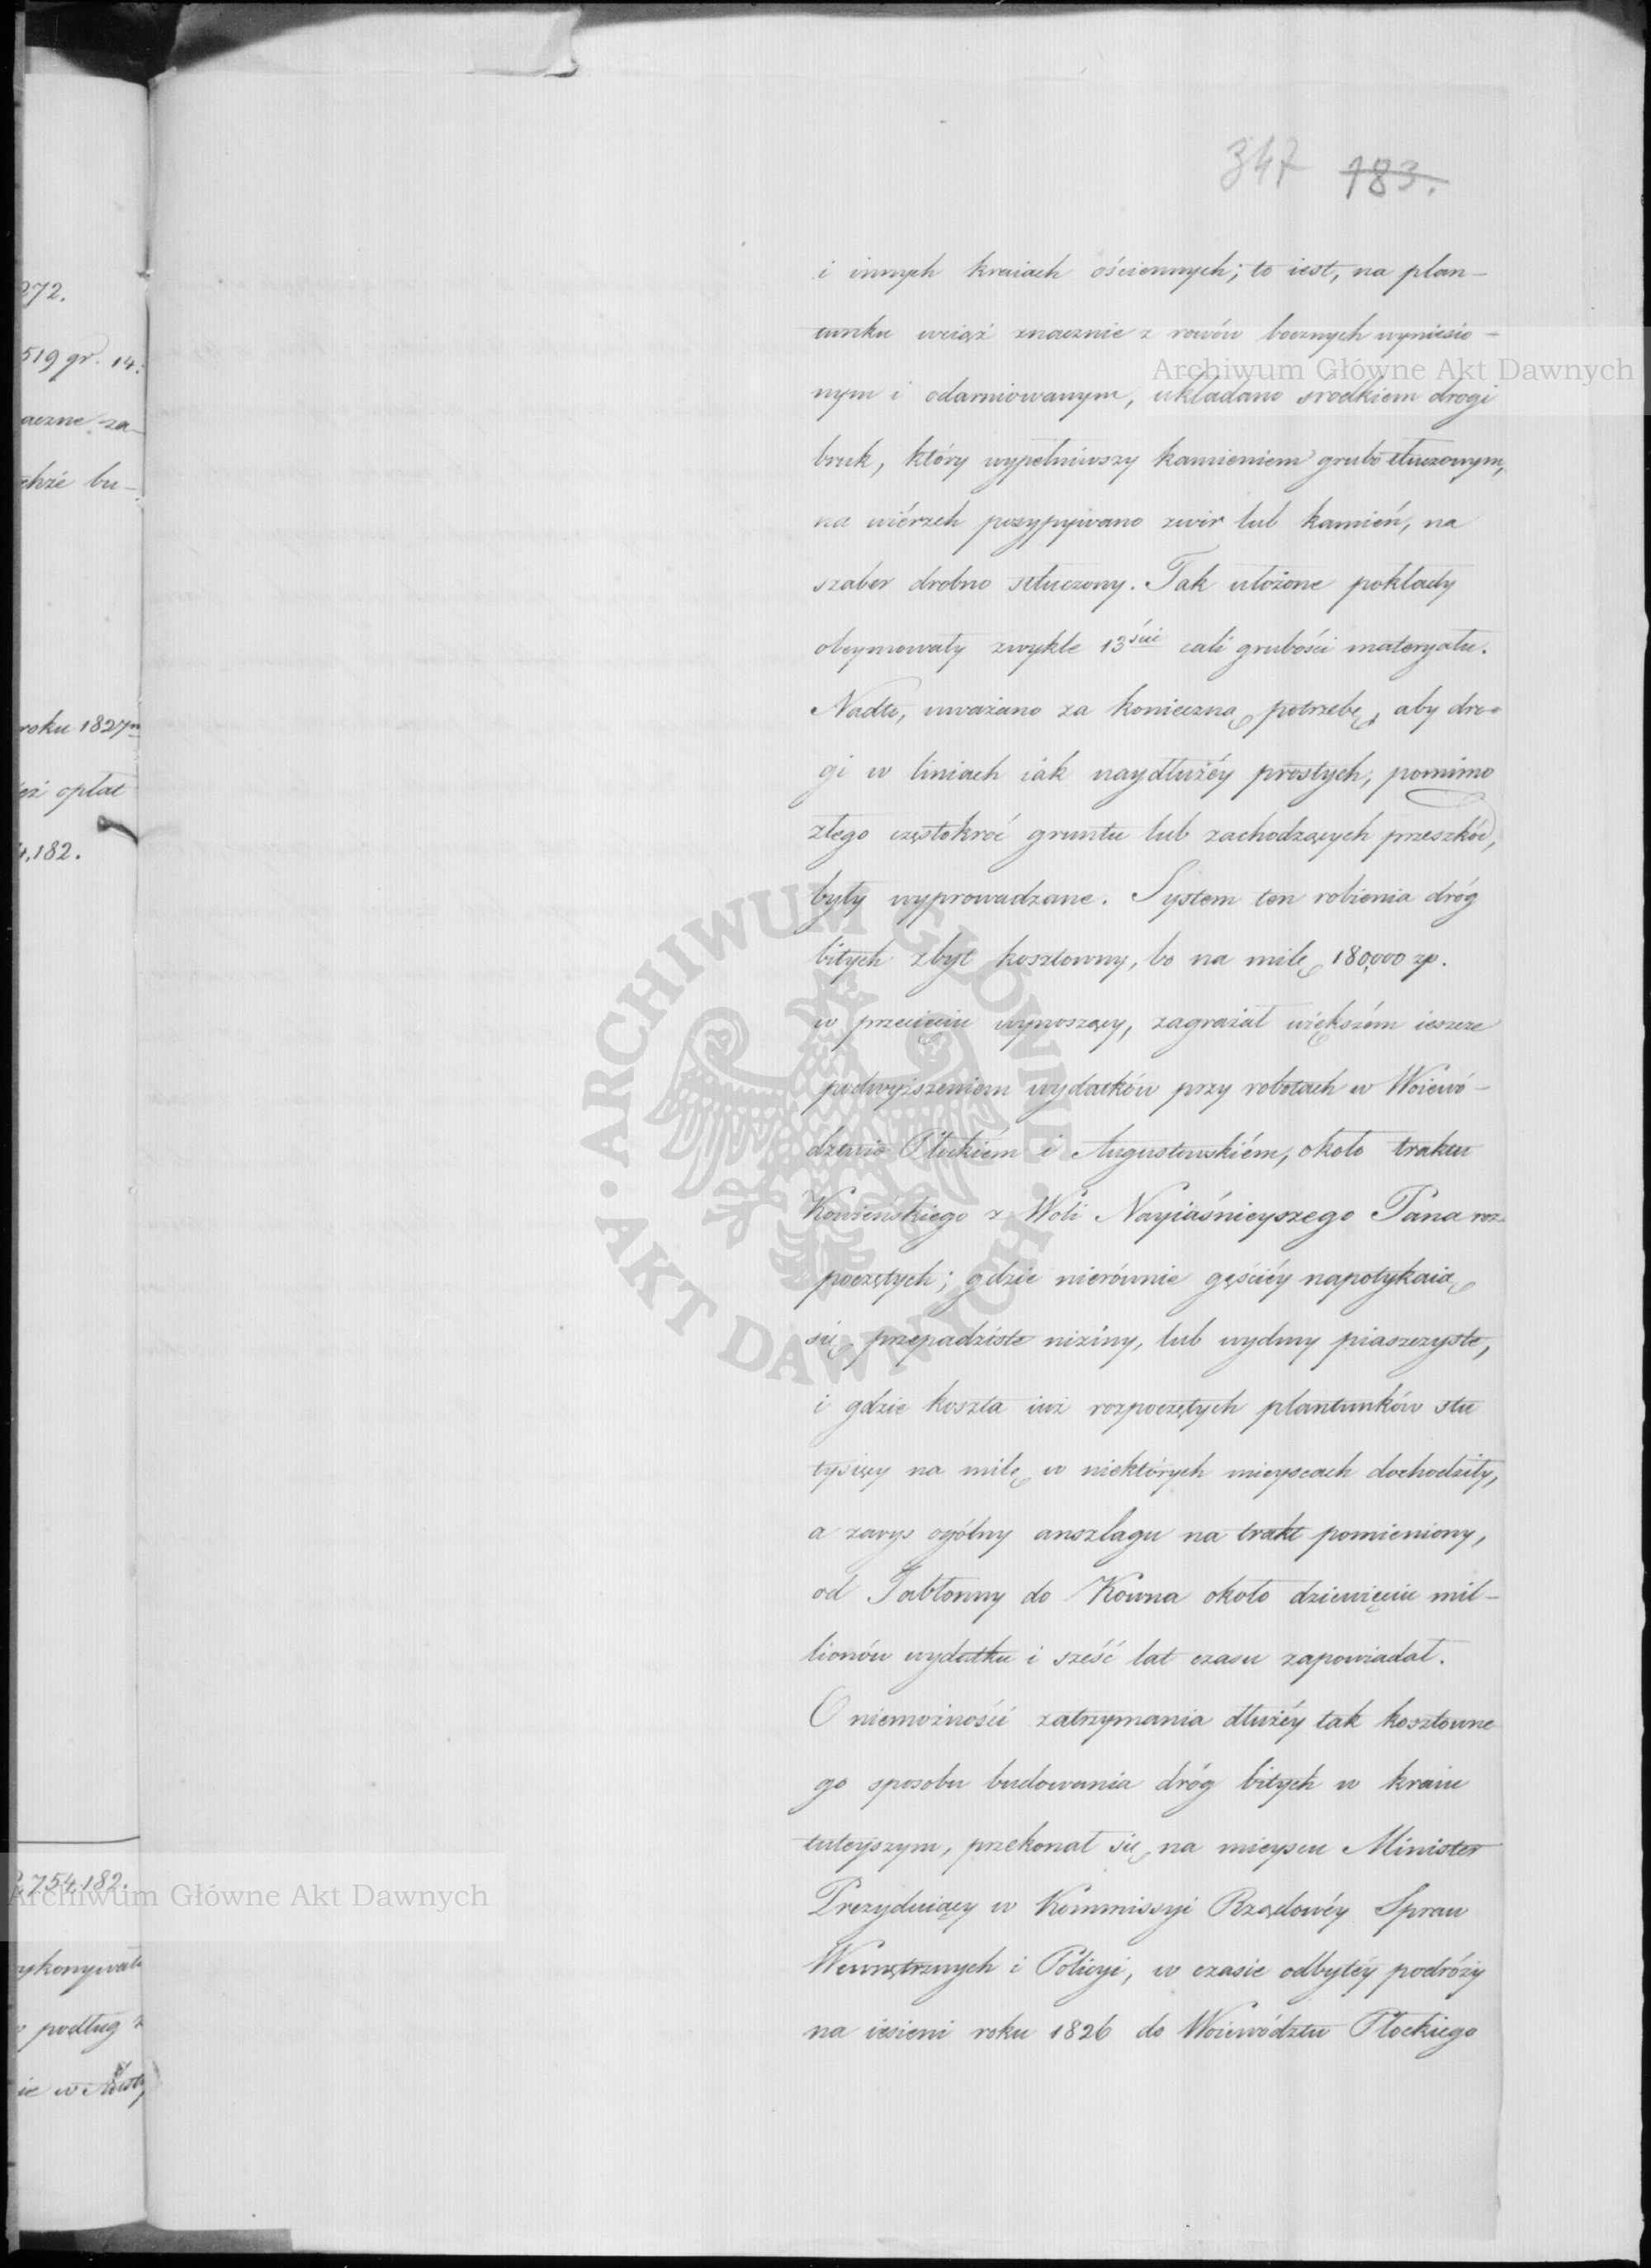 272.
519 gr. 14.
aczne za-
chże bu-
roku 1827
opłat
4,182.
2,754,182.
ykonywał
podług
ie w
347 183.
i innych kraiach ościennych; to iest, na plan-
tunku wciąż znacznie z rowów bocznych wyniesio-
nym i odarniowanym, układano srodkiem drogi
bruk, który wypełniwszy kamieniem grubo tłuczonym,
na wiérzch posypywano zwir lub kamień, na
szaber drobno stłuczony. Tak ułożone pokłady
obeymowały zwykle 13ści cali grubości materyału.
Nadto, uważano za konieczną potrzebę, aby dro-
gi w liniach iak naydłużéy prostych, pomimo
złego częstokroć gruntu lub zachodzących przeszkód,
były wyprowadzane. System ten robienia dróg
bitych zbyt kosztowny, bo na milę 180,000 zp.
w przecięciu wynoszący, zagrażał większém ieszcze
podwyższeniem wydatków przy robotach w Woiewó-
dztwie Płockiém i Augustowskiém, około traktu
Kowieńskiego z Woli Nayiaśnieyszego Pana roz-
poczętych; gdzie nierównie gęściéy napotykaią
się przepadziste niziny, lub wydmy piaszczyste,
i gdzie koszta iuż rozpoczętych plantunków stu
tysięcy na milę w niektórych mieyscach dochodziły,
a zarys ogólny anszlagu na trakt pomieniony,
od Jabłonny do Kowna około dziewięciu mil-
lionów wydatku i sześć lat czasu zapowiadał.
O niemożności zatrzymania dłużéy tak kosztowne
go sposobu budowania dróg bitych w kraiu
tuteyszym, przekonał się na mieyscu Minister
Prezyduiący w Kommissyi Rządowéy Spraw
Wewnętrznych i Policyi, w czasie odbytéy podróży
na iesieni roku 1826 do Woiewództw Płockiego
Archiwum Główne Akt Dawnych
ARCHIWUM GŁÓWNE · AKT DAWNYCH ·
Archiwum Główne Akt Dawnych